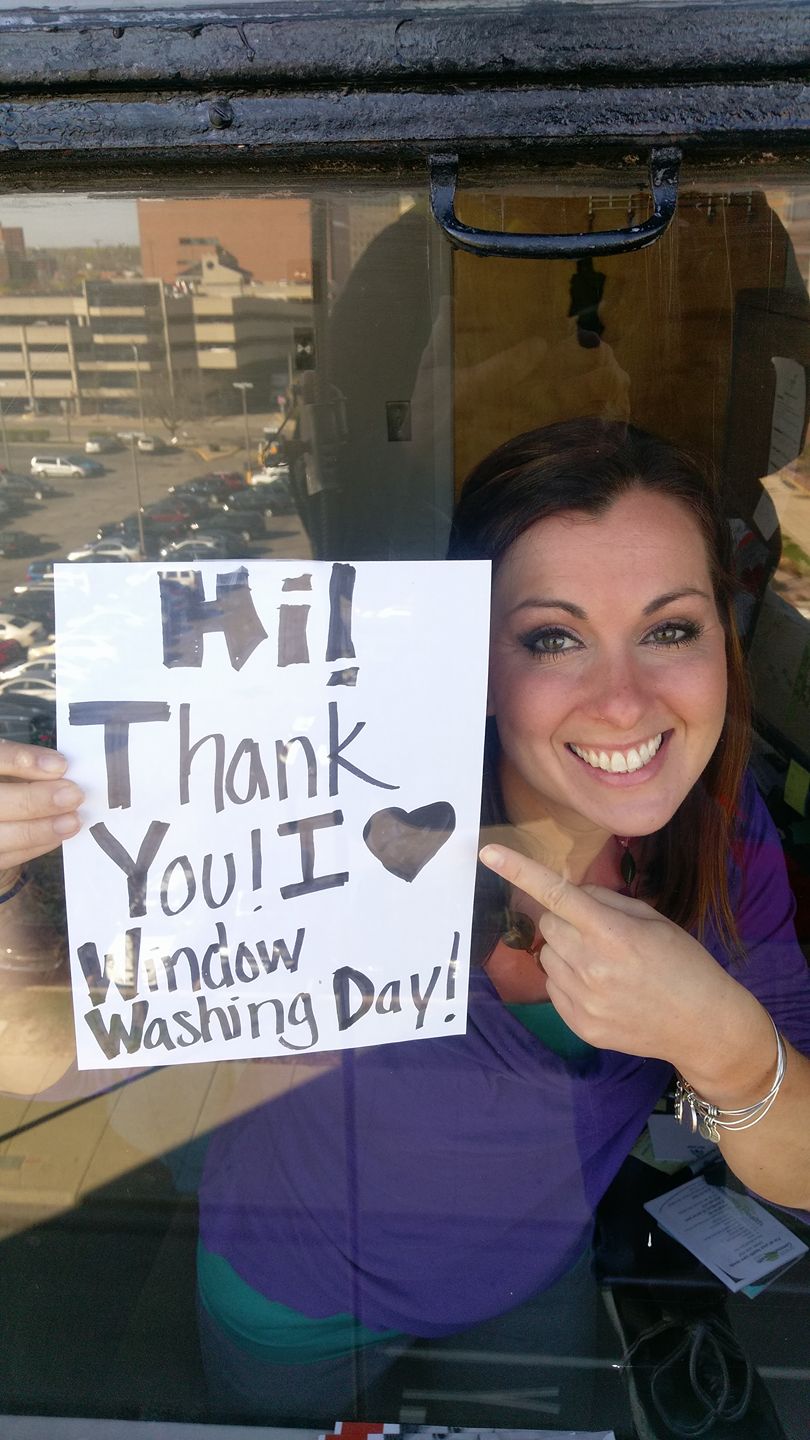 Hi!
Thank
You! I ♥
Window
Washing Day!